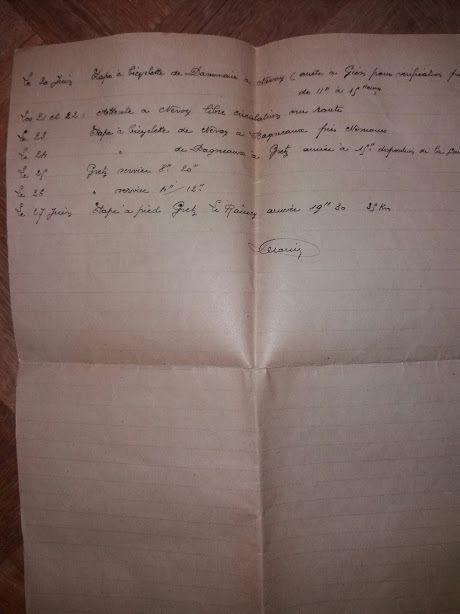 Le 20 Juin Etape à bicyclette de Dammarie à Névoy (arrêt à Gien pour vérification
de 11h à 15 heures
Les 21 et 22 : Attente à Névoy libre circulation sur route
Le 23 Etape à bicyclette de Névoy à Bagneaux près Nemours
Le 24 " de Bagneaux à Gretz arrivée à 15h
Le 25 Gretz service 8h 20h
Le 26 " service 4h / 12h
Le 27 Juin Etape à pied Gretz Le Raincy arrivée 19h 30 35 Km